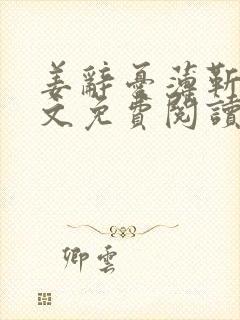 姜辭憂薄靳
文免費閱讀
卿雲